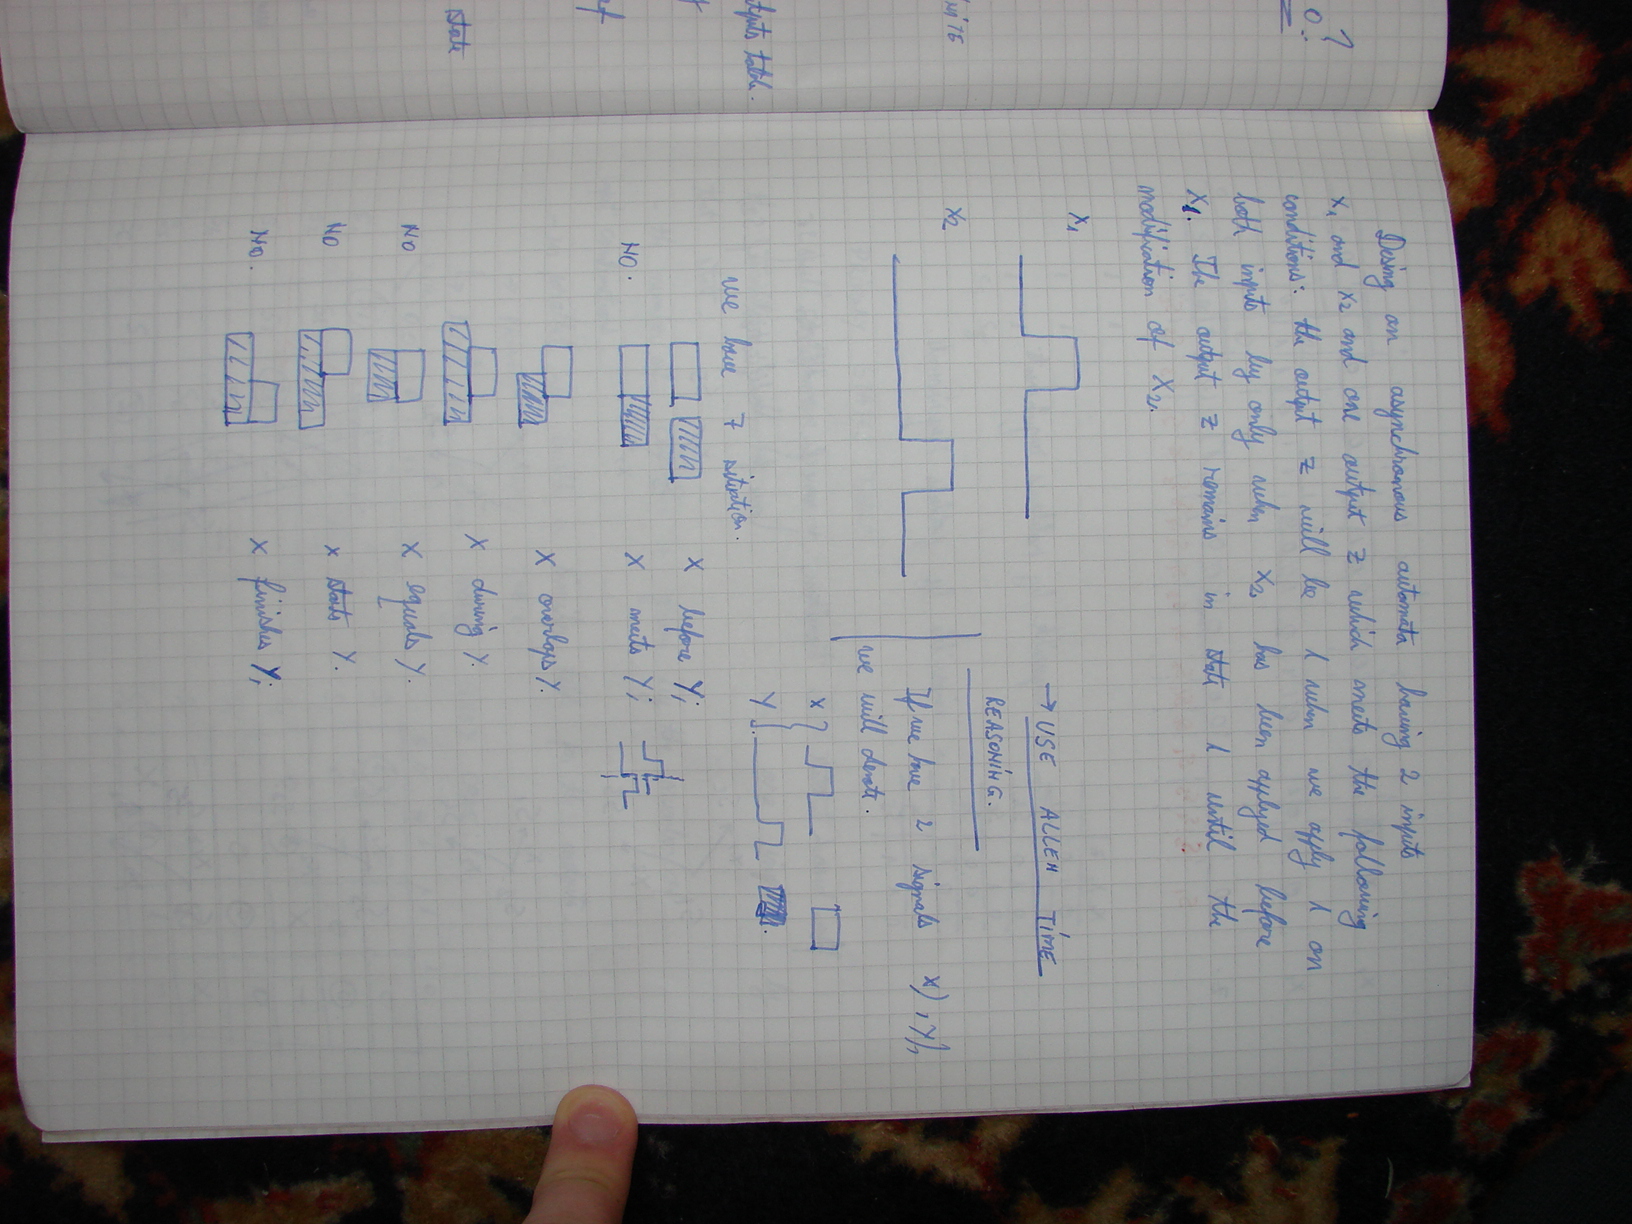 Desing an asynchronous automata having 2 inputs
x1 and x2 and one output z which meets the following
conditions: the output z will be 1 when we apply 1 on
both inputs by only when x2 has been applyed before
x1. The output z remains in state 1 until the
modification of x2.
x1
x2
→ USE ALLEN TIME
REASONING.
If we have 2 signals x), y),
we will denote.
x }
y }.
we have 7 sitution.
x before y;
NO. x meets y;
x overlops y.
x during y.
NO x equals y.
NO x stats y.
No. x finishes y;
puts table.
state
0: